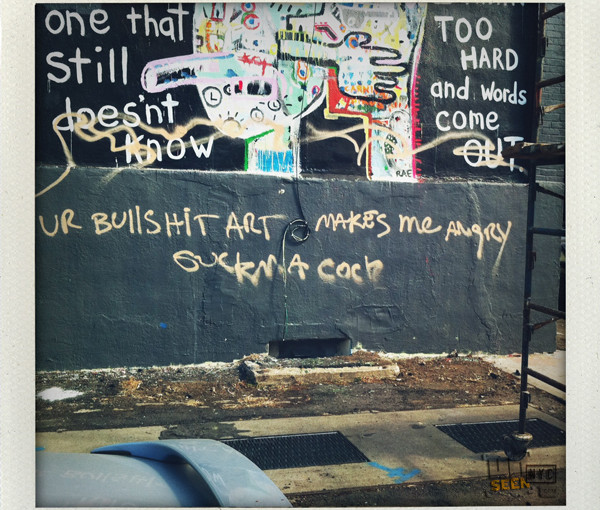 one that
still
does'nt
know
TOO
HARD
and words
come
OUT
RAE
UR BUllSHiT ART MAKES me ANGRY
SUCKMA COCK
SEEN NYC